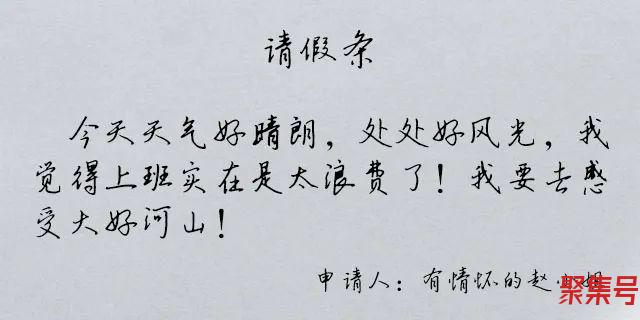 请假条
今天天气好晴朗，处处好风光，我
觉得上班实在是太浪费了！我要去感
受大好河山！
申请人：有情怀的赵小姐
聚集号